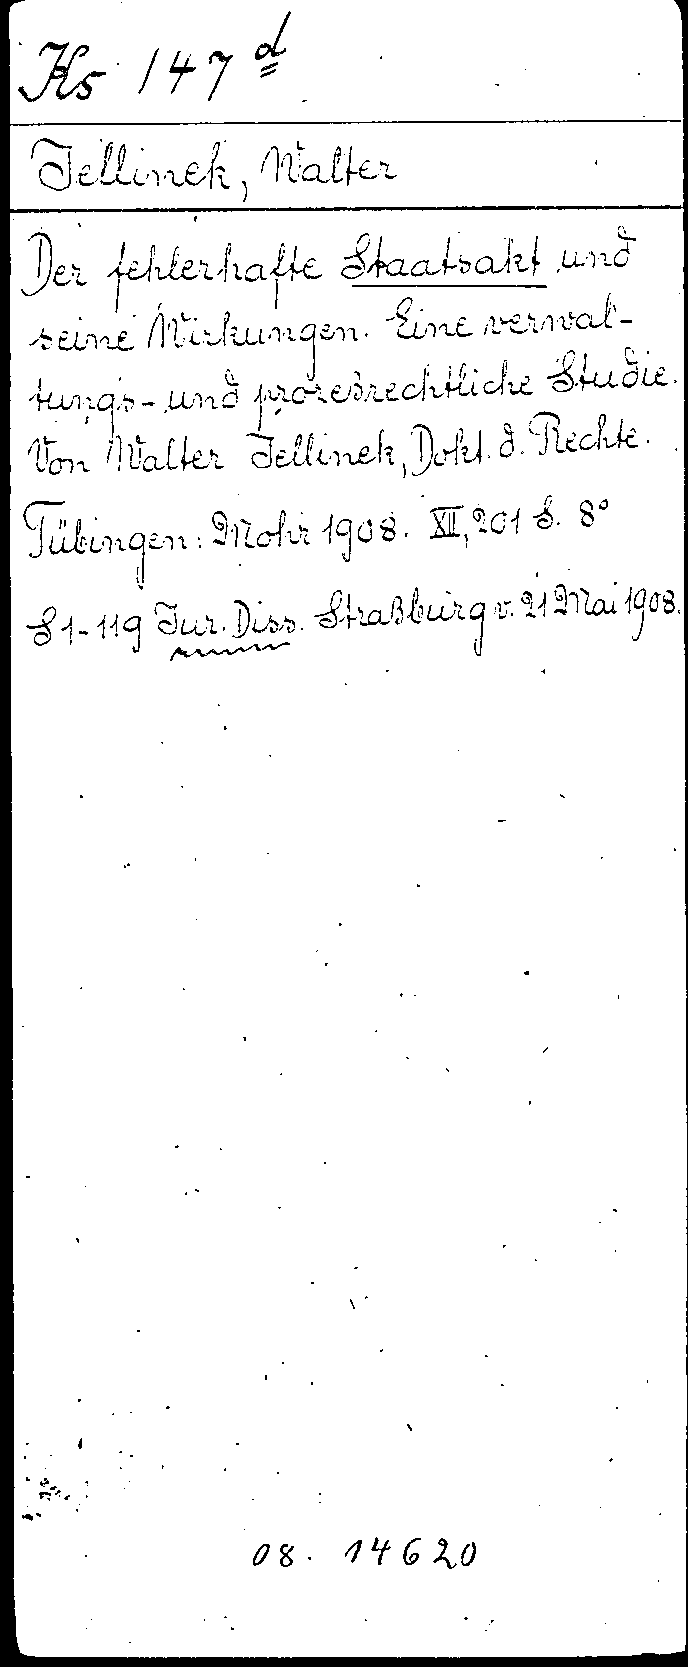 Ks 147 d
Jellinek, Walter
Der fehlerhafte Staatsakt und
seine Wirkungen. Eine verwal-
tungs- und prozeßrechtliche Studie.
Von Walter Jellinek, Dokt. d. Rechte.
Tübingen: Mohr 1908. XII, 201 S. 8°
S 1-119 Jur. Diss. Straßburg v. 21 Mai 1908.
08. 14620